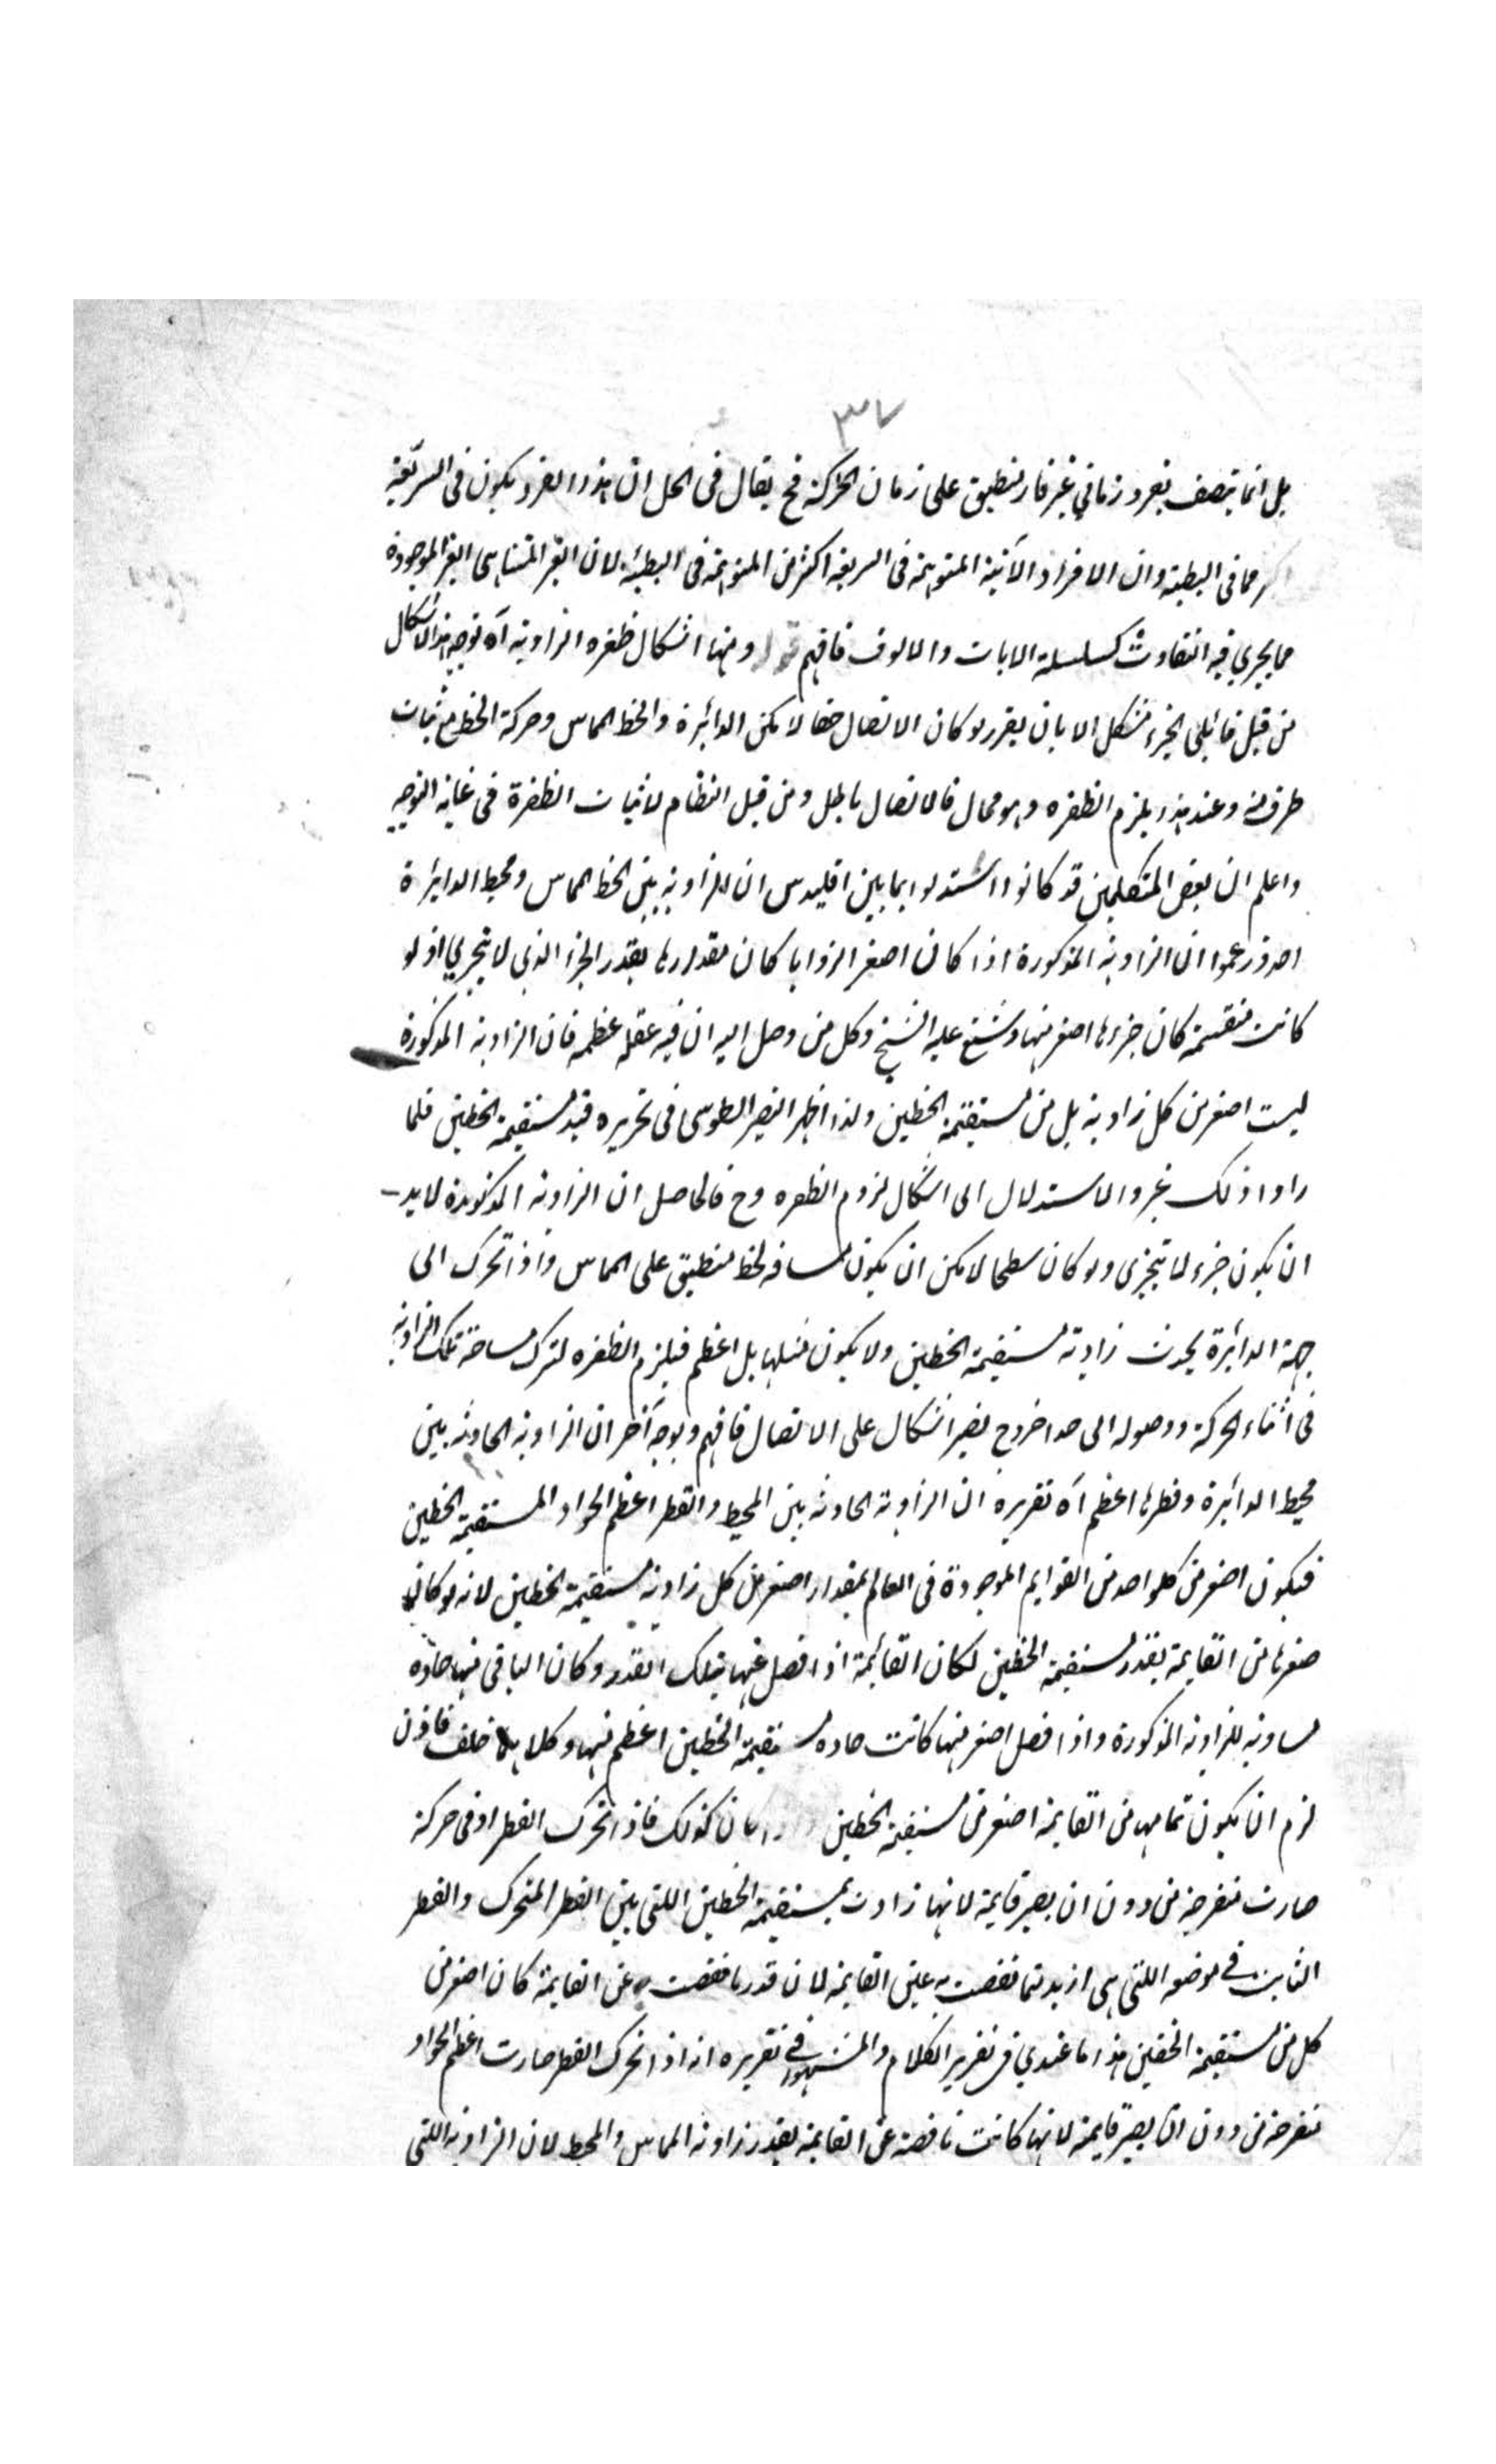 ٣٧
بل انما يتصف بفرد زماني غير قار منطبق على زمان الحركة فح يقال فى الحل ان هذا الفرد يكون فى السريعة
مما فى البطيئة وان الافراد الآنية المتوهمة فى السريعة اكثر من المتوهمة فى البطيئة لان الغير المتناهى الغير الموجودة
مما يجري فيه التفاوت كسلسلة الآبات والالوف فافهم قوله ومنها اشكال طفره الزاوية آه توجيه هذا الاشكال
من قبل قائلى الجزء مشكل الا بان يقرر لو كان الاتصال حقا لا مكن الدائرة والخط المماس وحركة الخط مع ثبات
طرف منه وعند هذا يلزم الطفره وهو محال فالاتصال باطل ومن قبل النظام لاثبات الطفرة فى غاية التوجيه
واعلم ان بعض المتكلمين قد كانوا استدلوا بما بين اقليدس ان الزاوية بين الخط المماس ومحيط الدايرة
احد وزعموا ان الزاوية المذكورة اذا كان اصغر الزوايا كان مقدارها بقدر الجزء الذى لا يتجزي اذ لو
كانت منقسمة كان جزءها اصغر منها وشنع عليه الشيخ وكل من وصل اليه ان فيه غفلة عظيمه فان الزاوية المذكورة
ليست اصغر من كل زاوية بل من مستقيمة الخطين ولذا اظهر النصير الطوسى فى تحريره قيد مستقيمة الخطين فلما
راوا ذلك غيروا الاستدلال الى اشكال لزوم الطفره وح فالحاصل ان الزاوية المذكورة لا بد
ان يكون جزء لا يتجزى ولو كان سطحا لامكن ان يكون مسافه لخط منطبق على المماس واذا تحرك الى
جهة الدائرة يحدث زاوية مستقيمة الخطين ولا يكون مثلها بل اعظم فيلزم الطفره لترك مساحة تلك الزاوية
فى اثناء الحركة ووصوله الى حد اخر وح يصير اشكال على الاتصال فافهم وبوجه آخر ان الزاوية الحادثه بين
محيط الدائرة وقطرها اعظم آه تقريره ان الزاوية الحادثه بين المحيط والقطر اعظم الحواد المستقيمة الخطين
فيكون اصغر من كل واحد من القوايم الموجودة فى العالم بمقدار اصغر من كل زاوية مستقيمة الخطين لانه لو كان
صغرها من القايمة بقدر مستقيمة الخطين لكان القائمة اذا فصل عنها بتلك القدر وكان الباقى منها حاده
مساوية للزاوية المذكورة واذا فصل اصغر منها كانت حاده مستقيمة الخطين اعظم منها وكلاهما خلف فاذن
لزم ان يكون تمامها من القايمة اصغر من مستقيمة الخطين كان كذلك فاذا تحرك القطر اوفى حركة
صارت منفرجة من دون ان يصير قايمة لانها زادت بمستقيمة الخطين اللتى بين القطر المتحرك والقطر
الثابت فى موضعه اللتى هى ازيد مما نقصت به عن القايمة لان قدر ما نقصت به عن القايمة كان اصغر من
كل من مستقيمة الخطين هذا ما عندي فى تقرير الكلام والمشهور فى تقريره انه اذا تحرك القطر صارت اعظم الحواد
منفرجة من دون ان يصير قايمة لانها كانت ناقصة عن القايمة بقدر زاوية المماس والمحيط لان الزاوية اللتى